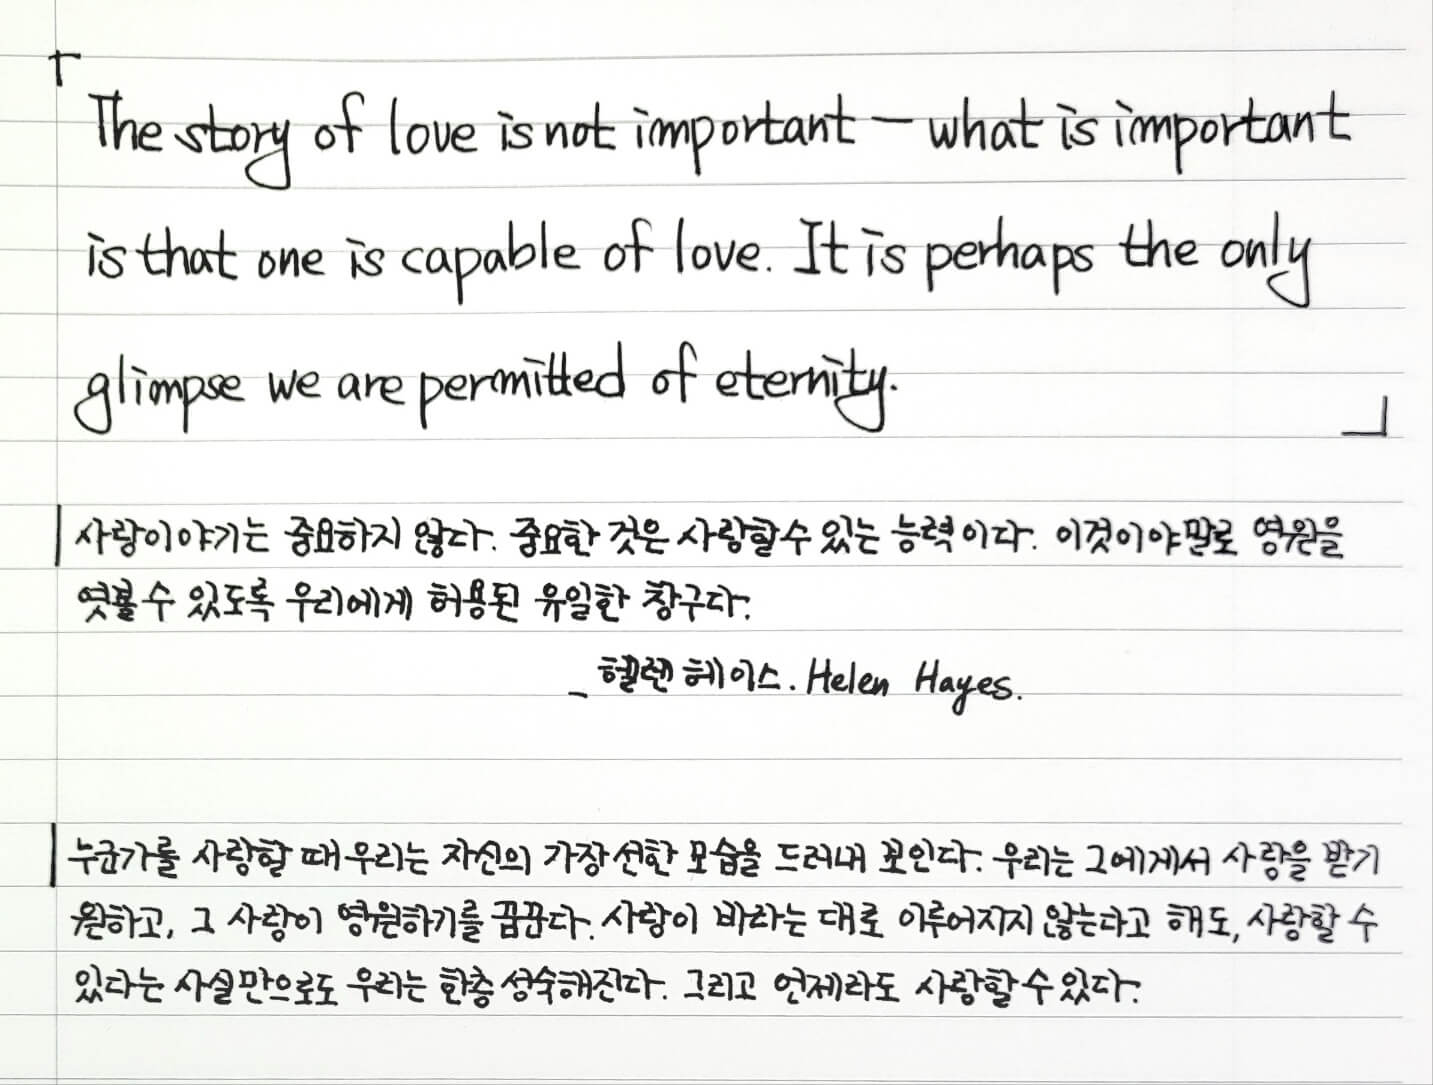 「
The story of love is not important – what is important
is that one is capable of love. It is perhaps the only
glimpse we are permitted of eternity.
」
사랑이야기는 중요하지 않다. 중요한 것은 사랑할 수 있는 능력이다. 이것이야말로 영원을
엿볼 수 있도록 우리에게 허용된 유일한 창구다.
_ 헬렌 헤이스. Helen Hayes.
누군가를 사랑할 때 우리는 자신의 가장 선한 모습을 드러내 보인다. 우리는 그에게서 사랑을 받기
원하고, 그 사랑이 영원하기를 꿈꾼다. 사랑이 바라는 대로 이루어지지 않는다고 해도, 사랑할 수
있다는 사실만으로도 우리는 한층 성숙해진다. 그리고 언제라도 사랑할 수 있다.